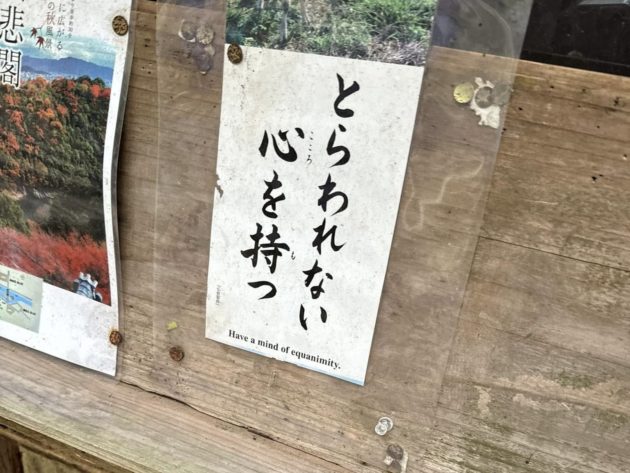 に広がる
の秋風景
悲閣
とらわれない
心を持つ
こころ
も
Have a mind of equanimity.